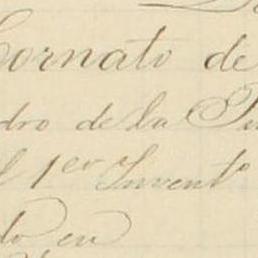 Cornato de
dro de la Pu
l 1er Invento
do en